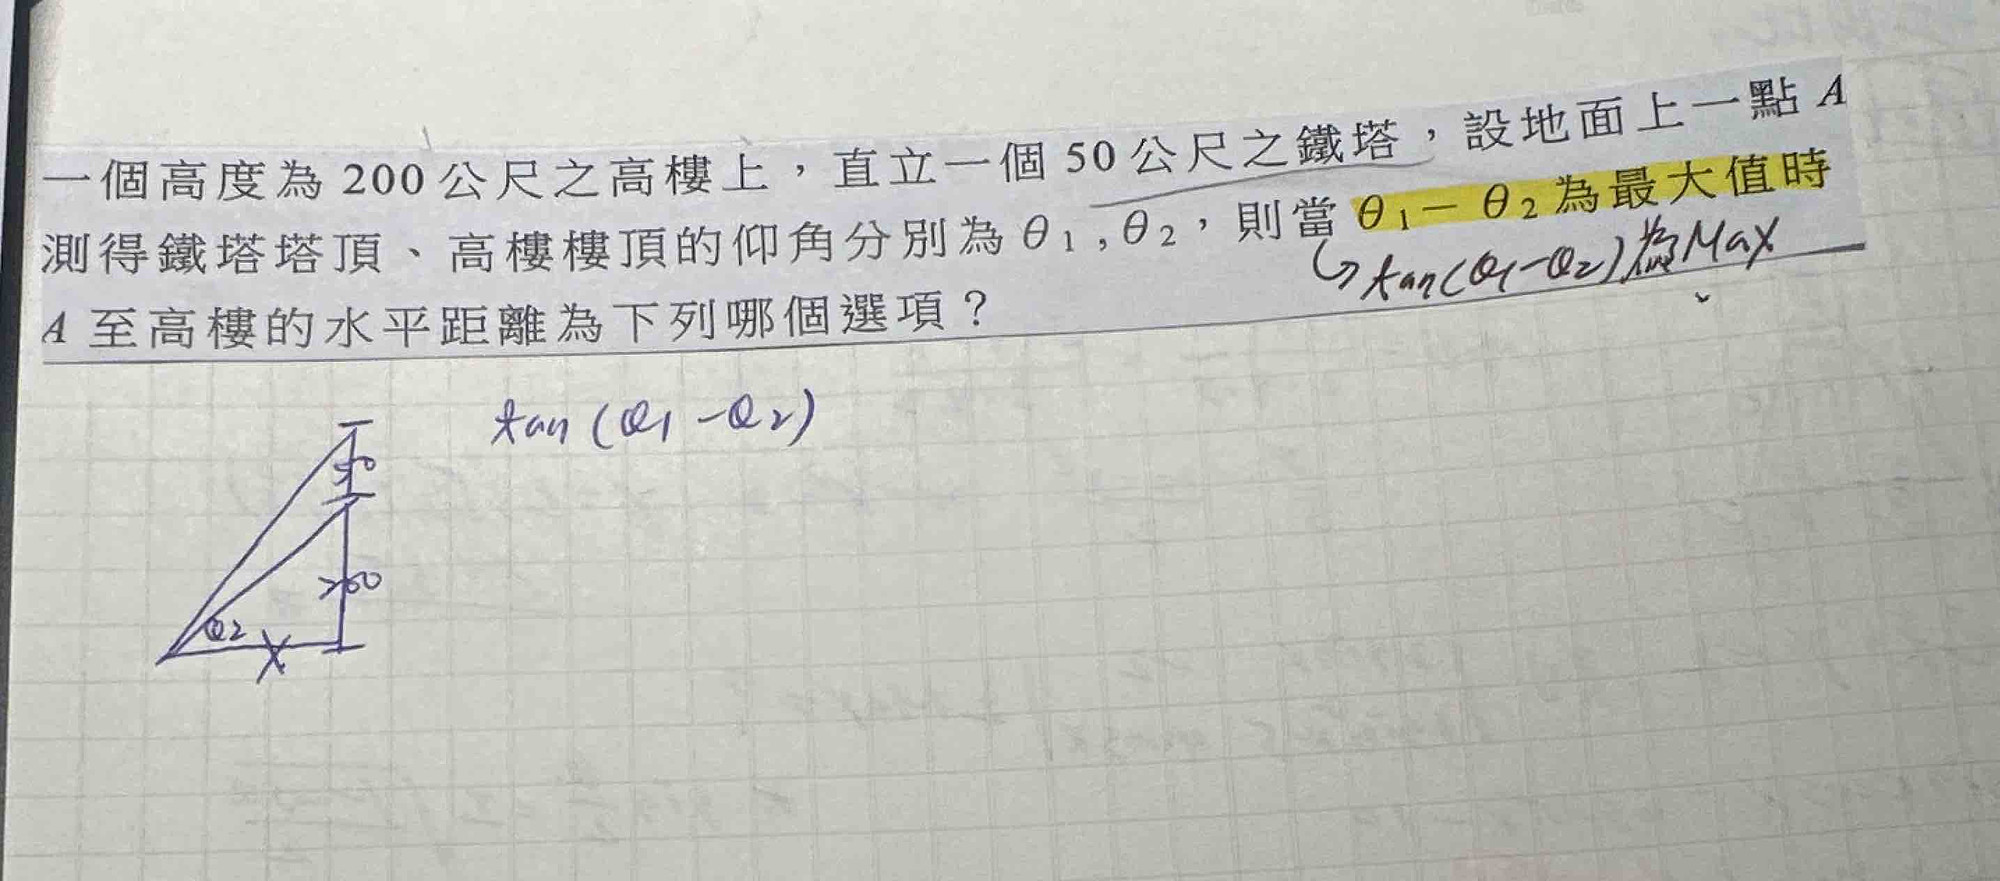 一個高度為 200 公尺之高樓上，直立一個 50 公尺之鐵塔，設地面上一點 A
測得鐵塔塔頂、高樓樓頂的仰角分別為 θ₁,θ₂，則當 θ₁－θ₂ 為最大值時
↳ tan(θ1-θ2)為Max
A 至高樓的水平距離為下列哪個選項？
tan (θ1 -θ2)
50
200
θ2
x